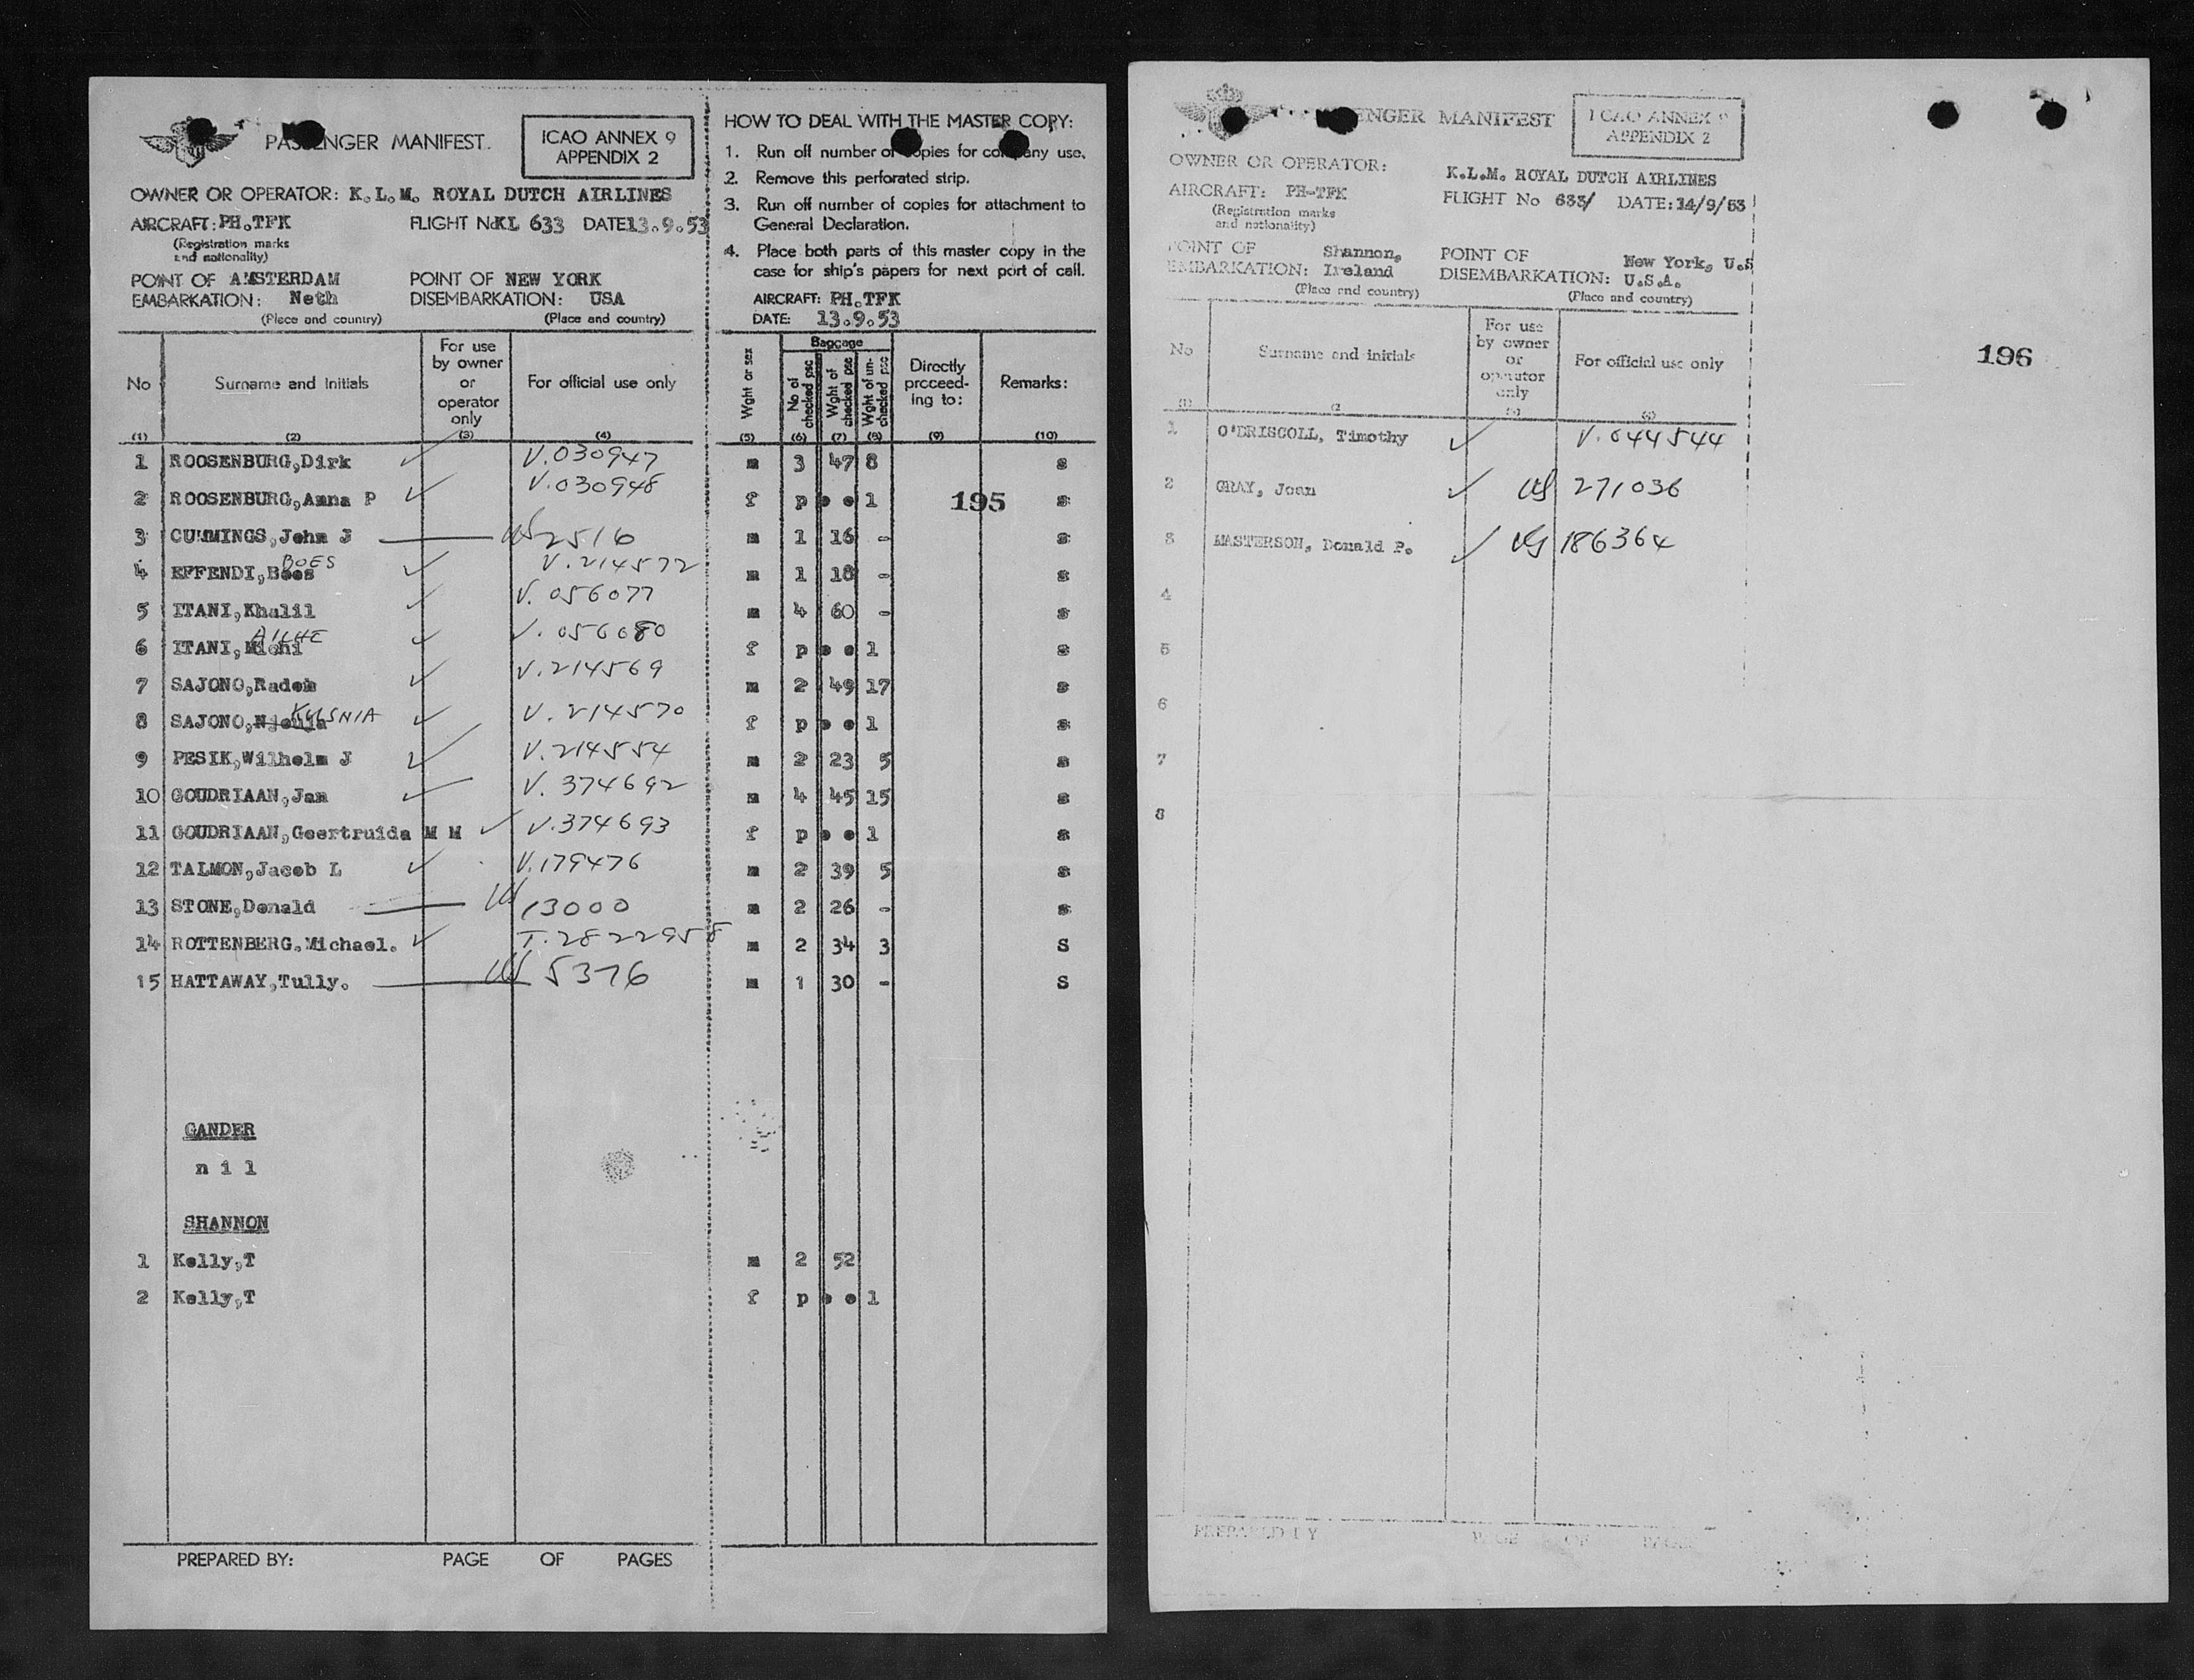 PASSENGER MANIFEST.
ICAO ANNEX 9
APPENDIX 2
OWNER OR OPERATOR: K.L.M. ROYAL DUTCH AIRLINES
AIRCRAFT: PH.TFK FLIGHT No KL 633 DATE 13.9.53
(Registration marks
and nationality)
POINT OF AMSTERDAM POINT OF NEW YORK
EMBARKATION: Neth DISEMBARKATION: USA
(Place and country) (Place and country)
No Surname and Initials For use by owner or operator only For official use only
(1) (2) (3) (4)
1 ROOSENBURG,Dirk V.030947
2 ROOSENBURG,Anna P V.030948
3 CUMMINGS,John J US 2516
4 EFFENDI,Boes BOES V.214572
5 ITANI,Khalil V. 056077
6 ITANI, V. 056080
7 SAJONO,Raden V.214569
8 SAJONO, KUSNIA V. 214570
9 PESIK,Wilhelm J V.214554
10 GOUDRIAAN,Jan V. 374692
11 GOUDRIAAN,Geertruida M M V.374693
12 TALMON,Jacob L V.179476
13 STONE,Donald US 13000
14 ROTTENBERG,Michael. T.2822958
15 HATTAWAY,Tully. US 5376
GANDER
n i l
SHANNON
1 Kelly,T
2 Kelly,T
PREPARED BY: PAGE OF PAGES
HOW TO DEAL WITH THE MASTER COPY:
1. Run off number of copies for company use.
2. Remove this perforated strip.
3. Run off number of copies for attachment to
General Declaration.
4. Place both parts of this master copy in the
case for ship's papers for next port of call.
AIRCRAFT: PH.TFK
DATE: 13.9.53
Wght or sex Baggage No of checked psc Wght of checked psc Wght of unchecked psc Directly proceeding to: Remarks:
(5) (6) (7) (8) (9) (10)
m 3 47 8 s
f p • • 1 195 s
m 1 16 - s
m 1 18 - s
m 4 60 - s
f p • • 1 s
m 2 49 17 s
f p • • 1 s
m 2 23 5 s
m 4 45 15 s
f p • • 1 s
m 2 39 5 s
m 2 26 - s
m 2 34 3 S
m 1 30 - S
m 2 52
f p • • 1
PASSENGER MANIFEST
ICAO ANNEX 9
APPENDIX 2
OWNER OR OPERATOR: K.L.M. ROYAL DUTCH AIRLINES
AIRCRAFT: PH-TFK FLIGHT No 633/ DATE:14/9/53
(Registration marks
and nationality)
POINT OF Shannon, POINT OF New York, U.S
EMBARKATION: Ireland DISEMBARKATION: U.S.A.
(Place and country) (Place and country)
196
No Surname and initials For use by owner or operator only For official use only
1 O'DRISCOLL, Timothy V.044544
2 GRAY, Joan US 271036
3 MASTERSON, Donald P. US 186364
4
5
6
7
8
PREPARED BY PAGE OF PAGES